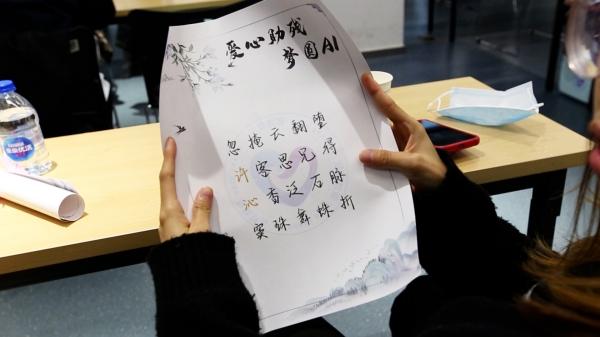 爱心助残
梦圆AI
忽掩衣翻盟
许客思兄得
沁香泛石脉
实殊舞蛛折